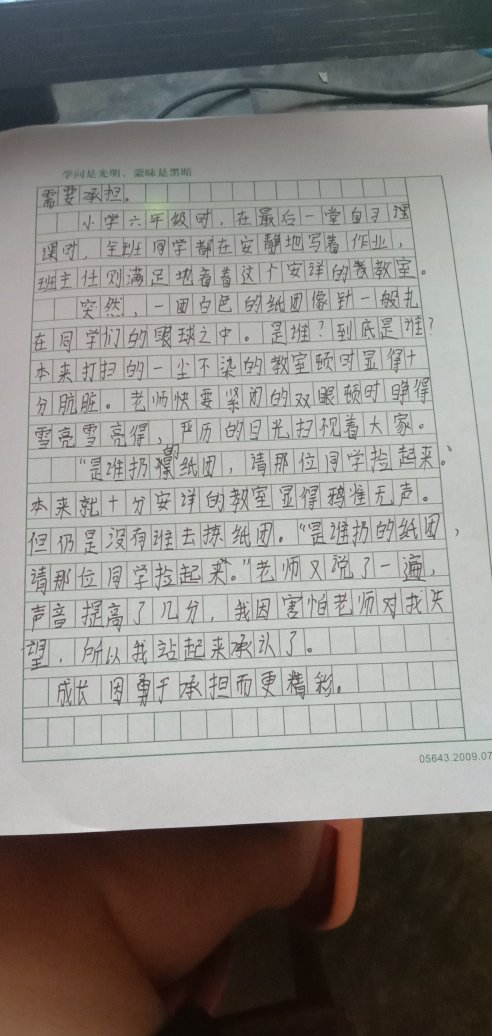 学问是光明，蒙昧是黑暗
需要承担。
小学六年级时，在最后一堂自习课
课时，全班同学都在安静地写着作业，
班主任则满足地看着这个安详的教室。
突然，一团白色的纸团像针一般扎
在同学们的眼球之中。是谁？到底是谁？
本来打扫的一尘不染的教室顿时显得十
分肮脏。老师快要紧闭的双眼顿时睁得
雪亮雪亮得，严厉的目光扫视着大家。
“是谁扔的纸团，请那位同学捡起来。”
本来就十分安详的教室显得鸦雀无声。
但仍是没有谁去捡纸团。“是谁扔的纸团，
请那位同学捡起来。”老师又说了一遍，
声音提高了几分，我因害怕老师对我失
望，所以我站起来承认了。
成长因勇于承担而更精彩。
05643.2009.07